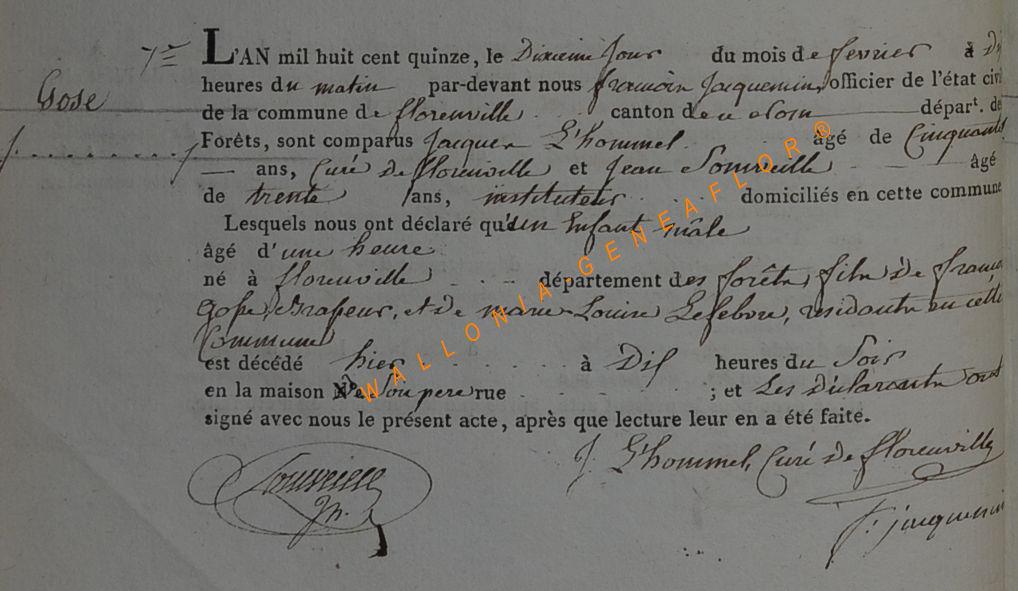 7e L'AN mil huit cent quinze, le Dixieme Jour du mois de fevrier à Dix
Gose heures du matin par-devant nous françois Jacquemin, officier de l'état civil
de la commune de florenville canton de départ. des
Forêts, sont comparus Jacques L'hommel âgé de Cinquante
ans, Curé de florenville et Jean âgé
de trente ans, instituteur domiciliés en cette commune
Lesquels nous ont déclaré qu'un Enfant mâle
âgé d'une heure
né à florenville département des forêts, fils de françois
Gose, et de marie Louise Lefebvre, residants en cette
Commune
est décédé hier à Dix heures du Soir
en la maison de Son pere rue ; et Les declarants ont
signé avec nous le présent acte, après que lecture leur en a été faite.
J. L'hommel, Curé de florenville
f. jacquemin
WALLONIA-GENEAFLOR ®